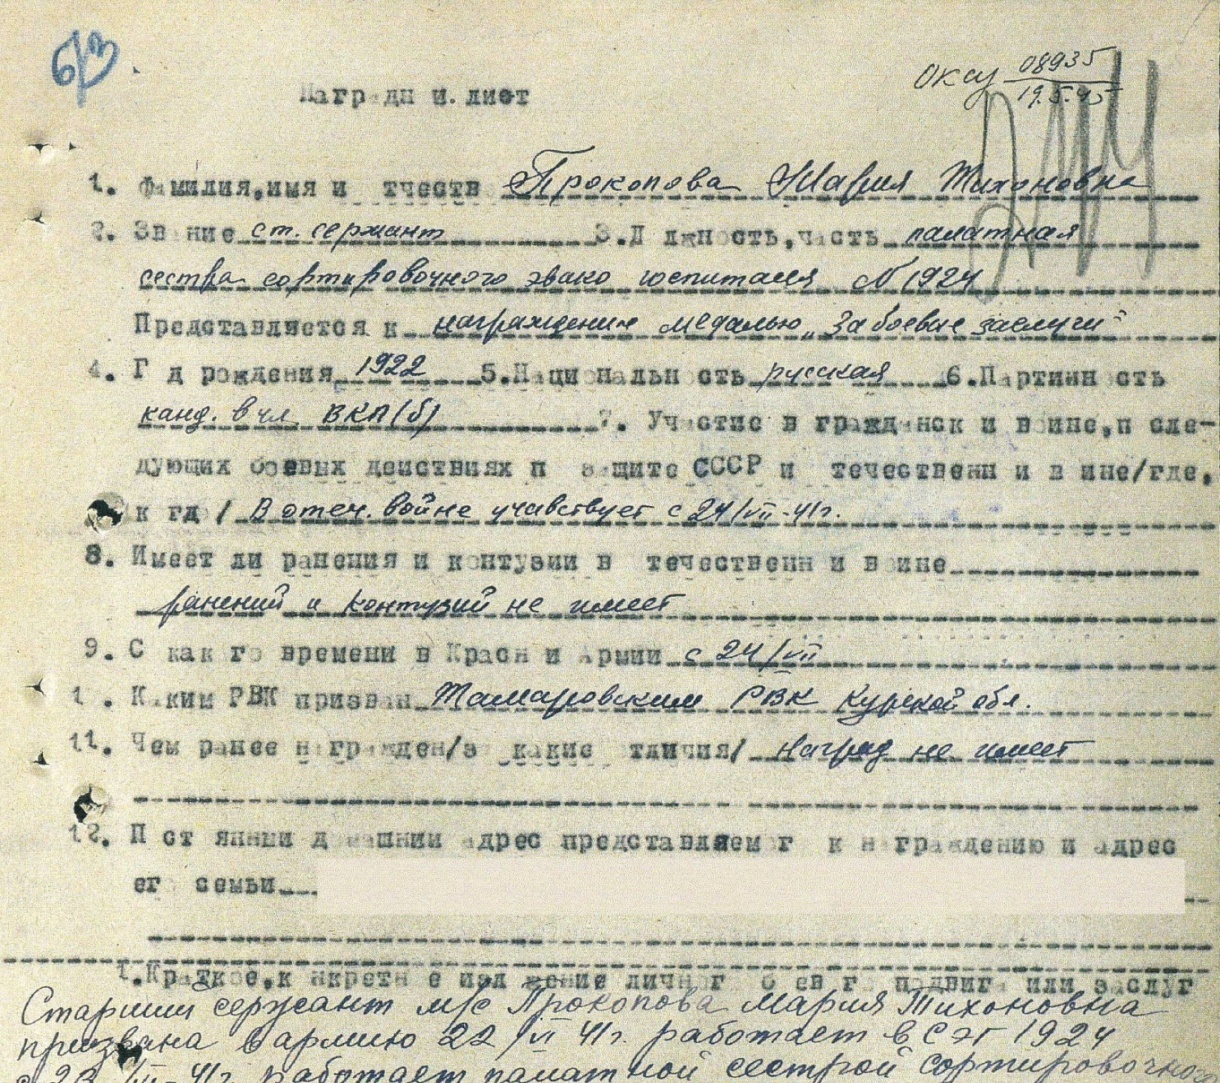 63
ОКсу 08935
19.5.45
Наградн й лист
1. Фамилия,имя и тчеств Прокопова Мария Тихоновна
2. Звание ст. сержант 3.Д лжность,часть палатная
сестра сортировочного эвако госпиталя № 1924
Представляется к награждению медалью „За боевые заслуги"
4. Г д рождения 1922 5.Национальн сть русская 6.Партийн сть
канд. в чл. ВКП(б) 7. Участие в гражданск й войне,п сле-
дующих боевых действиях п защите СССР и течественн й в йне/где,
к гд / В отеч. войне учавствует с 24/VII-41г.
8. Имеет ли ранения и к нтузии в течественн й войне
ранений и контузий не имеет
9. С как го времени в Красн й Армии с 24/VII
1 . Каким РВК призван РВК Курской обл.
11. Чем ранее награжден/за какие тличия/ наград не имеет
12. П ст янный домашний адрес представляем г к награждению и адрес
ег семьи
1.Краткое,к нкретн е изл жение личног б ев г подвига или заслуг
Старший сержант м/с Прокопова Мария Тихоновна
призвана в армию 22/VI 41г. работает в СЭГ 1924
с 41г. работает палатной сестрой сортировочного